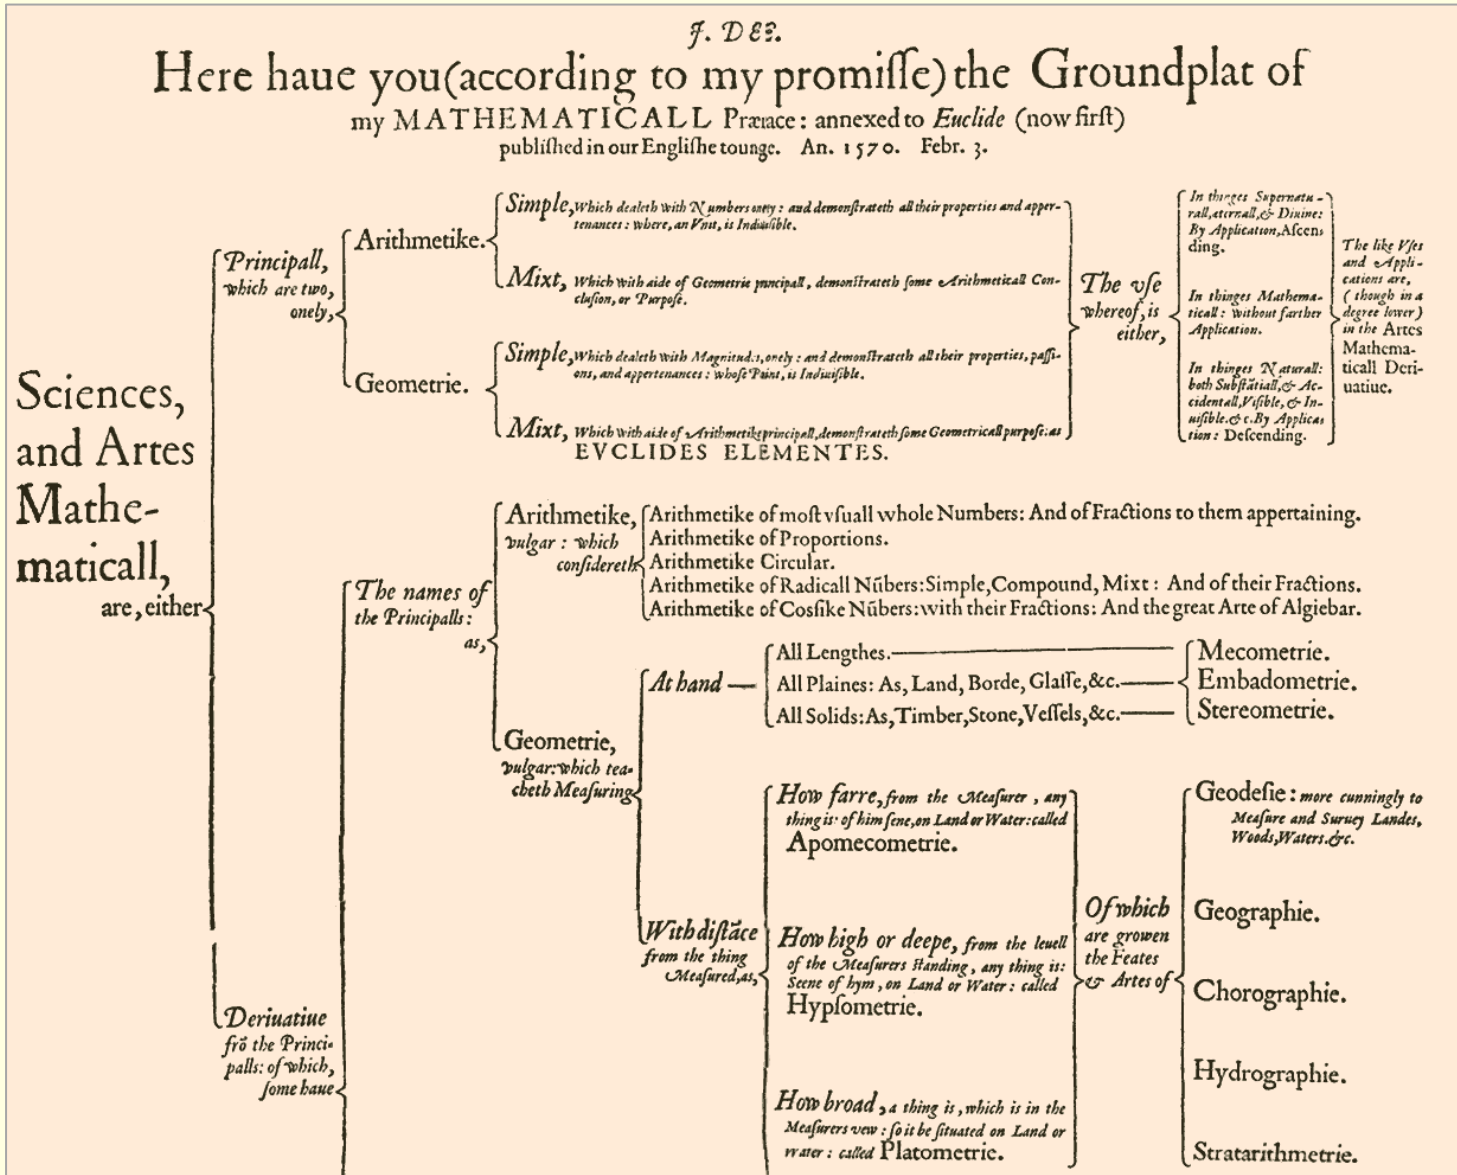 J. DEE.
Here haue you (according to my promiſſe) the Groundplat of
my MATHEMATICALL Præface: annexed to Euclide (now firſt)
publiſhed in our Engliſhe tounge. An. 1570. Febr. 3.
Sciences,
and Artes
Mathe-
maticall,
are, either
Principall,
which are two,
onely,
Arithmetike.
Simple, Which dealeth with Numbers onely: and demonſtrateth all their properties and apper-
tenances: where, an Vnit, is Indiuiſible.
Mixt, Which with aide of Geometrie principall, demonſtrateth ſome Arithmeticall Con-
cluſion, or Purpoſe.
Geometrie.
Simple, Which dealeth with Magnitudes, onely: and demonſtrateth all their properties, paſſi-
ons, and appertenances: whoſe Point, is Indiuiſible.
Mixt, Which with aide of Arithmetike principall, demonſtrateth ſome Geometricall purpoſe: as
EVCLIDES ELEMENTES.
The vſe
whereof, is
either,
In thinges Supernatu-
rall, æternall, & Diuine:
By Application, Aſcen-
ding.
In thinges Mathema-
ticall: without farther
Application.
In thinges Naturall:
both Subſtãtiall, & Ac-
cidentall, Viſible, & In-
uiſible. &c. By Applica-
tion: Deſcending.
The like Vſes
and Appli-
cations are,
(though in a
degree lower)
in the Artes
Mathema-
ticall Deri-
uatiue.
Deriuatiue
frõ the Princi-
palls: of which,
ſome haue
The names of
the Principalls:
as,
Arithmetike,
vulgar: which
conſidereth
Arithmetike of moſt vſuall whole Numbers: And of Fractions to them appertaining.
Arithmetike of Proportions.
Arithmetike Circular.
Arithmetike of Radicall Nũbers: Simple, Compound, Mixt: And of their Fractions.
Arithmetike of Cosſike Nũbers: with their Fractions: And the great Arte of Algiebar.
Geometrie,
vulgar: which tea-
cheth Meaſuring
At hand
All Lengthes.
All Plaines: As, Land, Borde, Glaſſe, &c.
All Solids: As, Timber, Stone, Veſſels, &c.
Mecometrie.
Embadometrie.
Stereometrie.
With diſtãce
from the thing
Meaſured, as,
How farre, from the Meaſurer, any
thing is: of him ſene, on Land or Water: called
Apomecometrie.
How high or deepe, from the leuell
of the Meaſurers ſtanding, any thing is:
Seene of hym, on Land or Water: called
Hypſometrie.
How broad, a thing is, which is in the
Meaſurers vew: ſo it be ſituated on Land or
Water: called Platometrie.
Of which
are growen
the Feates
& Artes of
Geodeſie: more cunningly to
Meaſure and Suruey Landes,
Woods, Waters. &c.
Geographie.
Chorographie.
Hydrographie.
Stratarithmetrie.